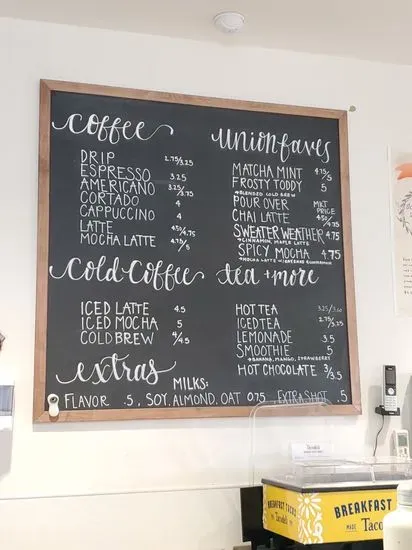 coffee
DRIP 2.75/3.25
ESPRESSO 3.25
AMERICANO 3.25/3.75
CORTADO 4
CAPPUCCINO 4
LATTE 4.50/4.75
MOCHA LATTE 4.75/5
cold coffee
ICED LATTE 4.5
ICED MOCHA 5
COLD BREW 4/4.5
extras
MILKS:
FLAVOR .5, SOY, ALMOND, OAT 0.75 EXTRA SHOT .5
union faves
MATCHA MINT 4.75/5
FROSTY TODDY 5
→BLENDED COLD BREW
POUR OVER MKT PRICE
CHAI LATTE 4.50/4.75
SWEATER WEATHER 4.75
→CINNAMIN, MAPLE LATTE
SPICY MOCHA 4.75
→MOCHA W/CAYENNE & CINNAMON
tea + more
HOT TEA 3.25/3.60
ICED TEA 2.75/3.25
LEMONADE 3.5
SMOOTHIE 5
→BANANA, MANGO, STRAWBERRY
HOT CHOCOLATE 3/3.5
BREAKFAST TACOS
BREAKFAST
MADE Taco